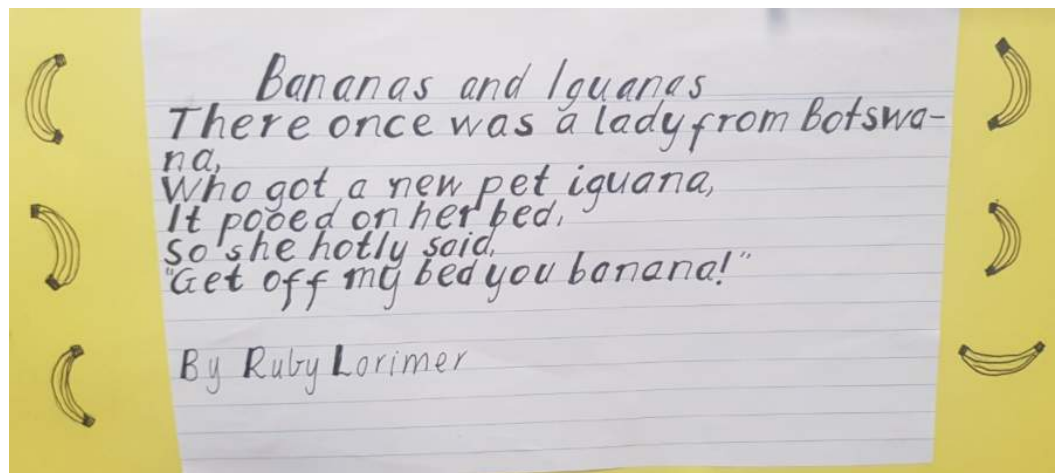 Bananas and Iguanas
There once was a lady from Botswa-
na,
Who got a new pet iguana,
It pooed on her bed,
So she hotly said,
"Get off my bed you banana!"
By Ruby Lorimer